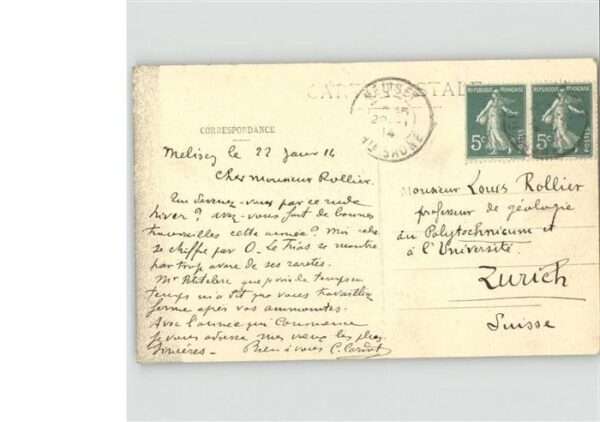 CARTE POSTALE
MELISEY
14
Hte SAÔNE
REPUBLIQUE FRANÇAISE
5c
POSTES
REPUBLIQUE FRANÇAISE
5c
POSTES
CORRESPONDANCE
Melisey le 22 Janv 14
Cher Monsieur Rollier.
vous par ce rude
hiver? avez-vous fait de bonnes
trouvailles cette année? Moi cela
se chiffre par 0. Le Trias se montre
par trop avare de ses raretés.
Mr que je vois de temps en
temps m'a dit que vous travaillez
ferme après vos ammonites.
Avec l'année qui commence
je vous adresse mes vœux les plus
sincères. Bien à vous C. Cardot
Monsieur Louis Rollier
professeur de géologie
au Polytechnicum et
à l'Université.
Zurich
Suisse